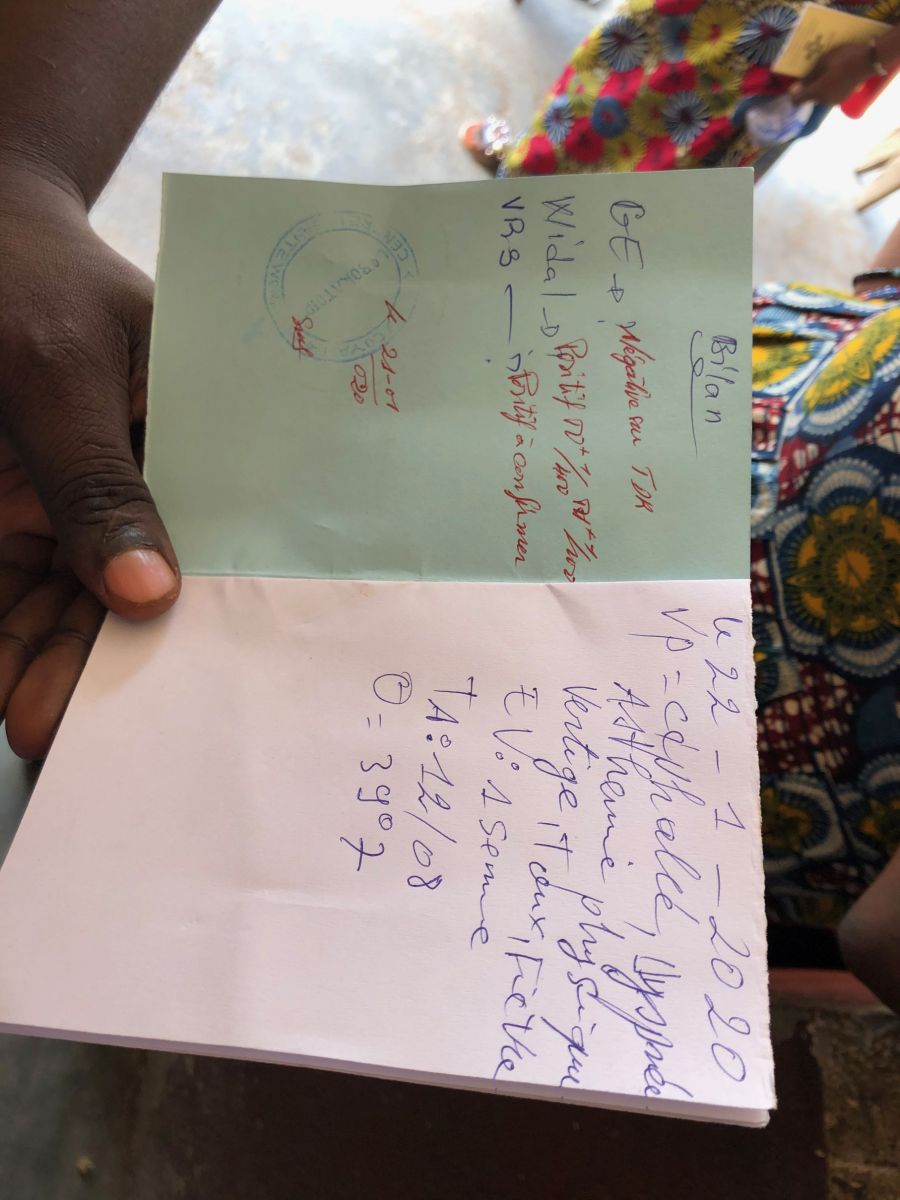 Bilan
GE → Négative au TDR
Widal → Positif TO+ 1/400 TH+ 1/400
VRS — Positif à confirmer
le 21-01
020
LABORATOIRE
le 22-1-2020
VP = céphalée, dyspnée
Asthenie physique
Vertige, toux, Fièvre
EV: 1 Seme
TA: 12/08
θ = 39°7